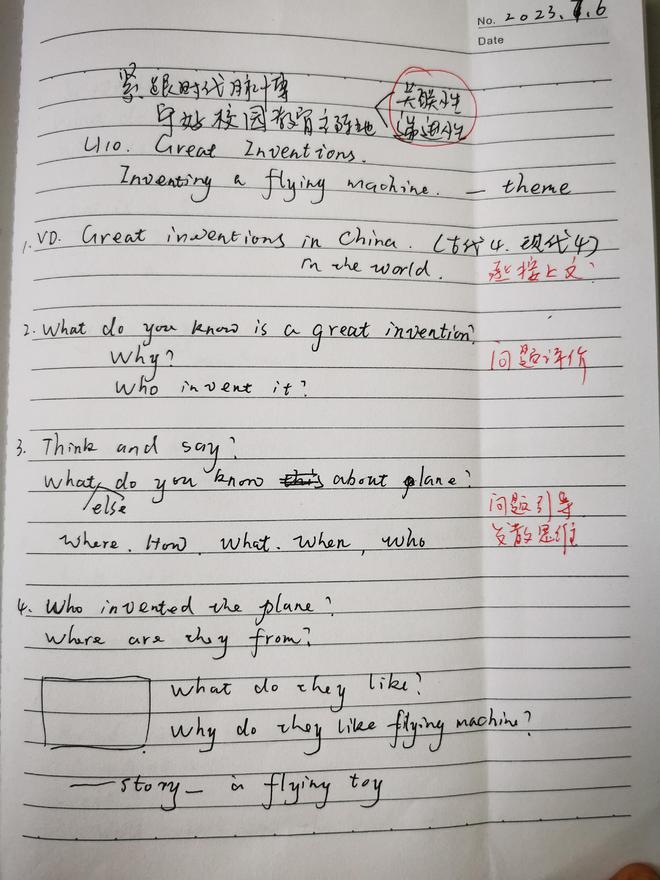 No. 2023.7.6
Date
紧跟时代脉搏
守好校园教育主阵地
关联性
递进性
U10. Great Inventions.
Inventing a flying machine. — theme
1. VD. Great inventions in China. (古代4. 现代4)
in the world.
承接上文
2. What do you know is a great invention?
Why?
问题评价
Who invent it?
3. Think and say?
What do you know about plane?
else
问题引导
Where. How. What. When, Who
发散思维
4. Who invented the plane?
Where are they from?
What do they like?
Why do they like flying machine?
— story — a flying toy